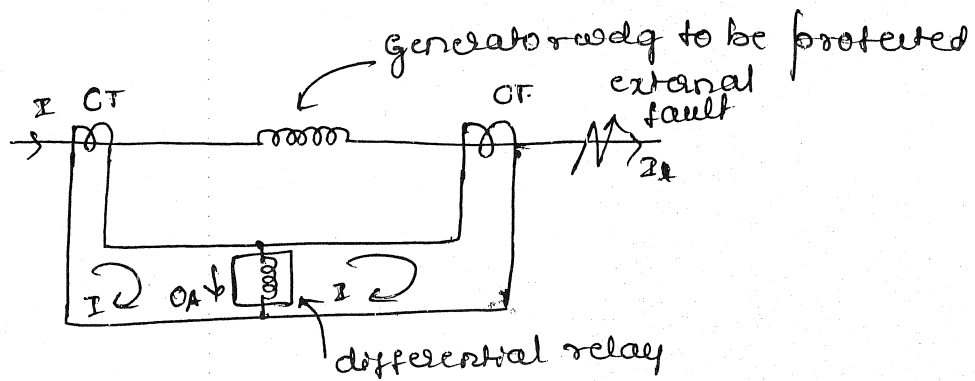 generator wdg to be protected
external
fault
I CT
CT
I1
I
OA
I
differential relay